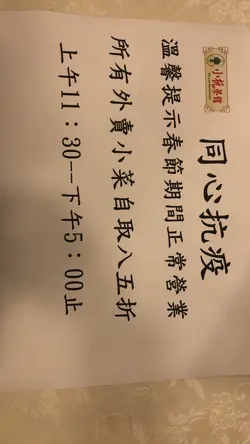 小杭菜館
同心抗疫
溫馨提示春節期間正常營業
所有外賣小菜自取八五折
上午11：30--下午5：00止